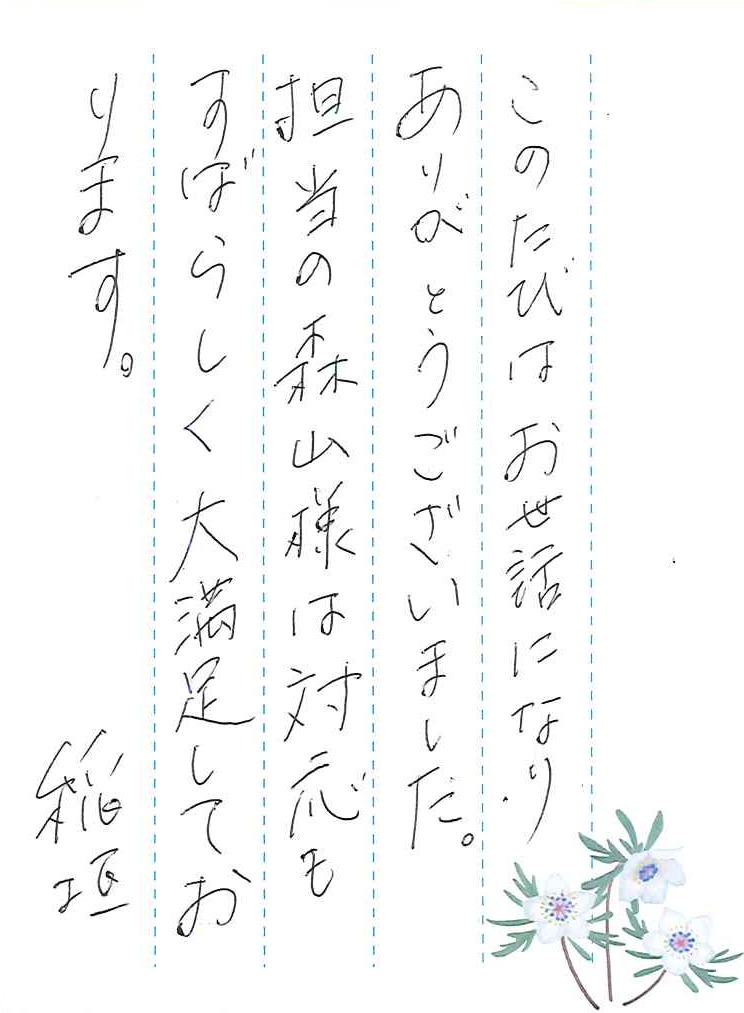 このたびはお世話になり
ありがとうございました。
担当の森山様は対応も
すばらしく大満足してお
ります。
稲垣